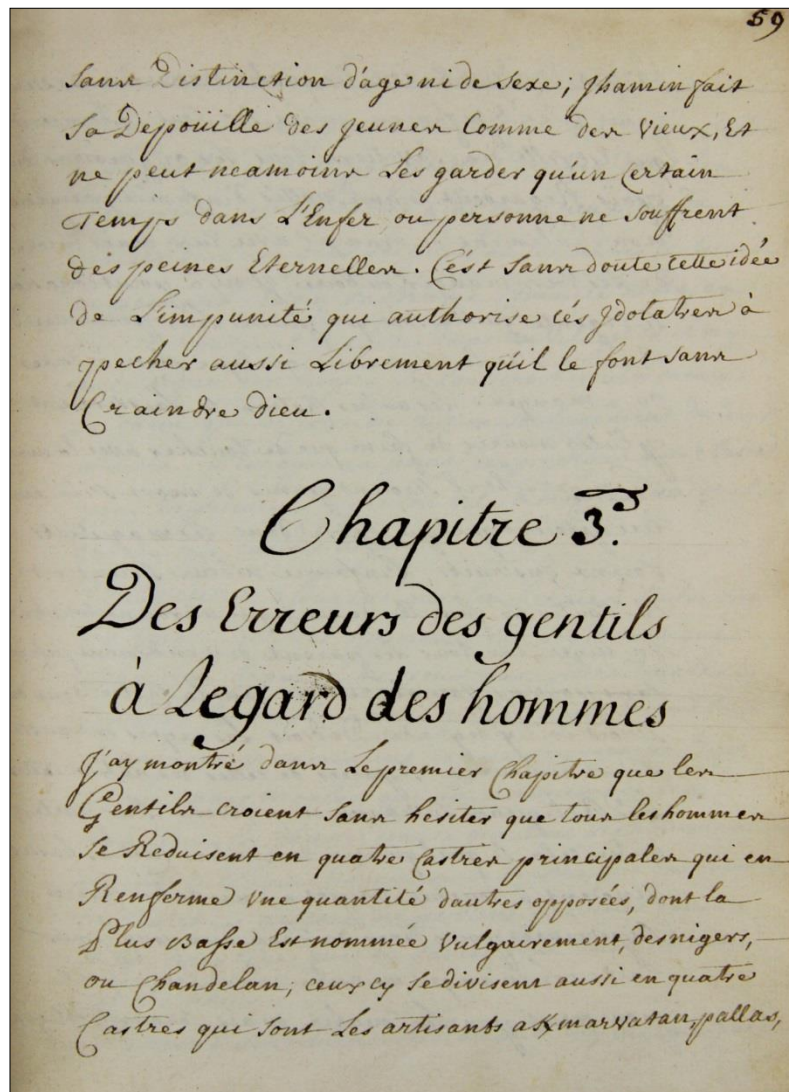 59
sans Distinction d'age ni de sexe; Jhamin fait
sa Depoüille des jeunes Comme des vieux, Et
ne peut neamoins Les garder qu'un Certain
Temps dans L'Enfer, ou personne ne souffrent
des peines Eternelles. C'ést sans doute cette idée
de L'impunité qui authorise cés Jdolatres à
pecher aussi Librement qu'il le font sans
Craindre Dieu.
Chapitre 3.
Des Erreurs des gentils
à Legard des hommes
J'ay montré dans Le premier Chapitre que les
Gentils croient sans hesiter que tous les hommes
se Reduisent en quatre Castres principales qui en
Renferme vne quantité d'autres opposées, dont la
Plus Basse Est nommée vulgairement, des nigers,
ou Chandelan; ceux cy se divisent aussi en quatre
Castres qui sont Les artisants pallas,